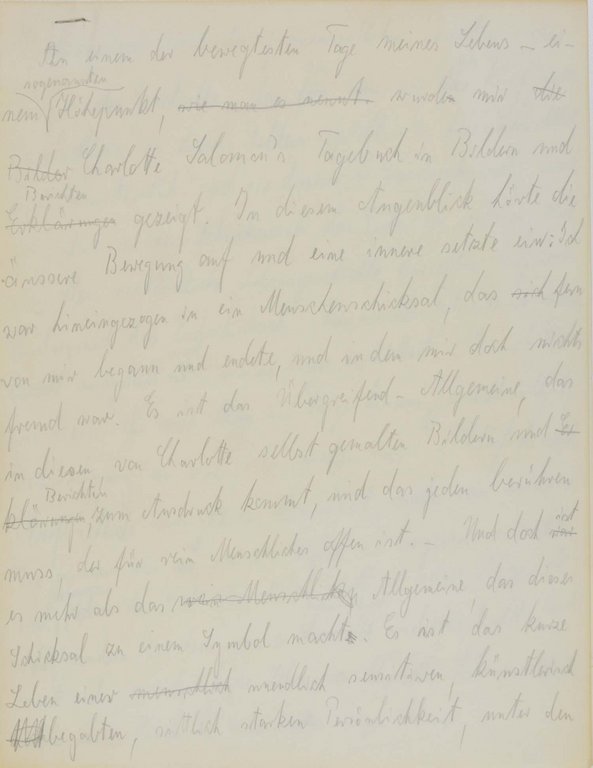 An einem der bewegtesten Tage meines Lebens – ei-
sogenannten
nem Höhepunkt, wie man es nennt. wurden mir die
Bilder Charlotte Salomon's Tagebuch in Bildern und
Berichten
Erklärungen gezeigt. In diesem Augenblick hörte die
äussere Bewegung auf und eine innere setzte ein: Ich
war hineingezogen in ein Menschenschicksal, das sich fern
von mir begann und endete, und in dem mir doch nichts
fremd war. Es ist das Übergreifend-Allgemeine, das
in diesen von Charlotte selbst gemalten Bildern und Er-
Berichten
klärungen, zum Ausdruck kommt, und das jeden berühren
muss, der für rein Menschliches offen ist. – Und doch ist
war
es mehr als das rein Menschlich Allgemeine, das dieses
Schicksal zu einem Symbol macht. Es ist das kurze
Leben einer menschlich unendlich sensitiven, künstlerisch
begabten, sittlich starken Persönlichkeit, unter den